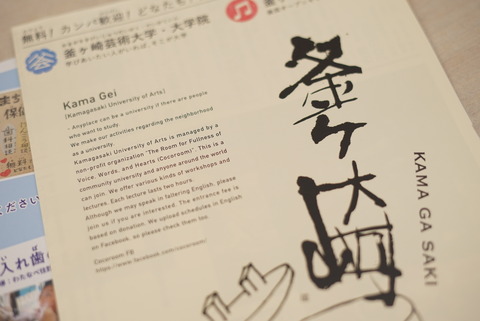 無料! カンパ歓迎! どなたも
釜ヶ崎芸術大学・大学院
学びあいたい人がいれば、そこが大学
Kama Gei
(Kamagasaki University of Arts)
- Anyplace can be a university if there are people
who want to study.
We make our activities regarding the neighborhood
as a university.
Kamagasaki University of Arts is managed by a
non-profit organization "The Room for Fullness of
Voice, Words, and Hearts (Cocoroom)". This is a
community university and anyone around the world
can join. We offer various kinds of workshops and
lectures. Each lecture lasts two hours.
Although we may speak in faltering English, please
join us if you are interested. The entrance fee is
based on donation. We upload schedules in English
on Facebook, so please check them too.
Cocoroom FB
https://www.facebook.com/cocoroom/
釜ヶ崎
KAMA GA SAKI
まち
保健
歯科相談
ください
入れ歯の